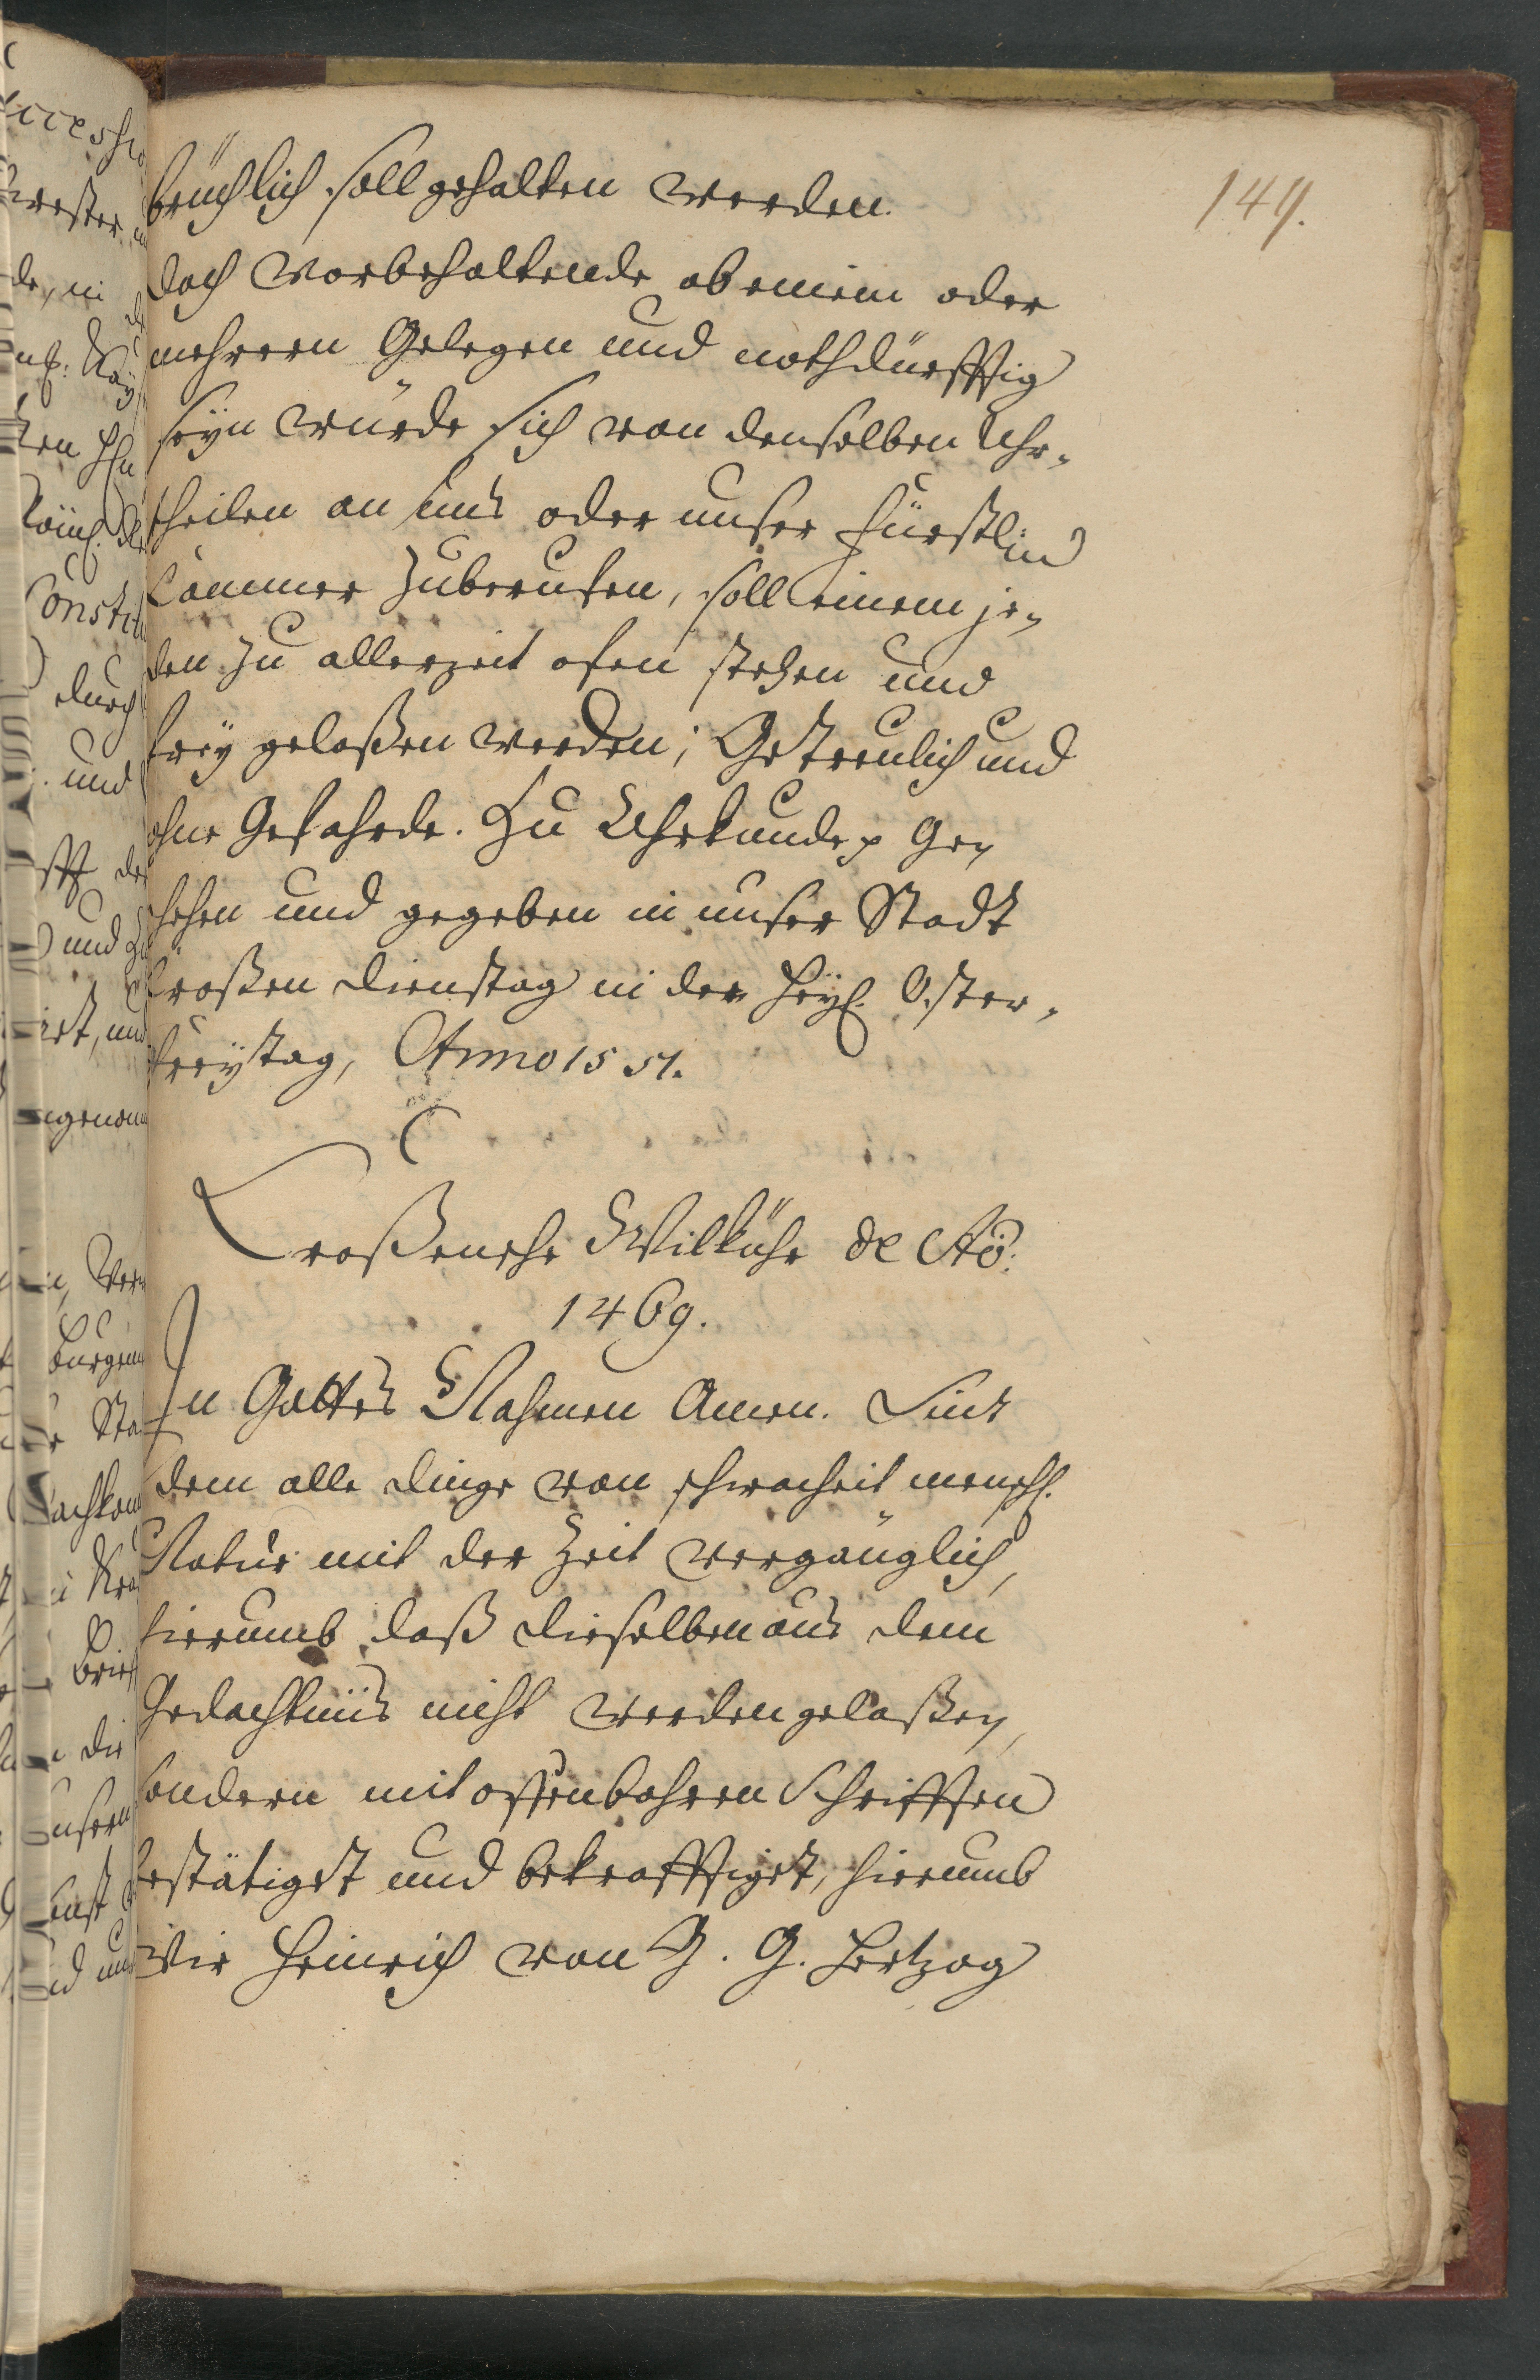 149.
brüchlich soll gehalten werden.
doch vorbehaltende ob einem oder
mehreren Gelegen und nothdürfftig
seyn würde sich von denselben Uhr-
theilen an uns oder unser fürstlin
Cammer zuberufen, soll einem je-
den zu allerzeit ofen stehen und
frey gelaßen werden; Getreulich und
ohne Gefahrde. Zu Uhrkunde Ge-
schehen und gegeben in unser Stadt
Croßen Dienstag in der heyl. Oster-
freytag, Anno 1551.
Croßensche Wilkühr de Ao.
1469.
In Gottes Nahmen Amen. Sint
dem alle dinge von schwacheit menschl.
Natur mit der Zeit vergänglich,
hierumb daß dieselben aus dem
Gedachtniß nicht werden gelaßen,
sondern mit offenbahren Schrifften
bestätiget und bekrafftiget, hierumb
Wir Heinrich von G. G. Hertzog